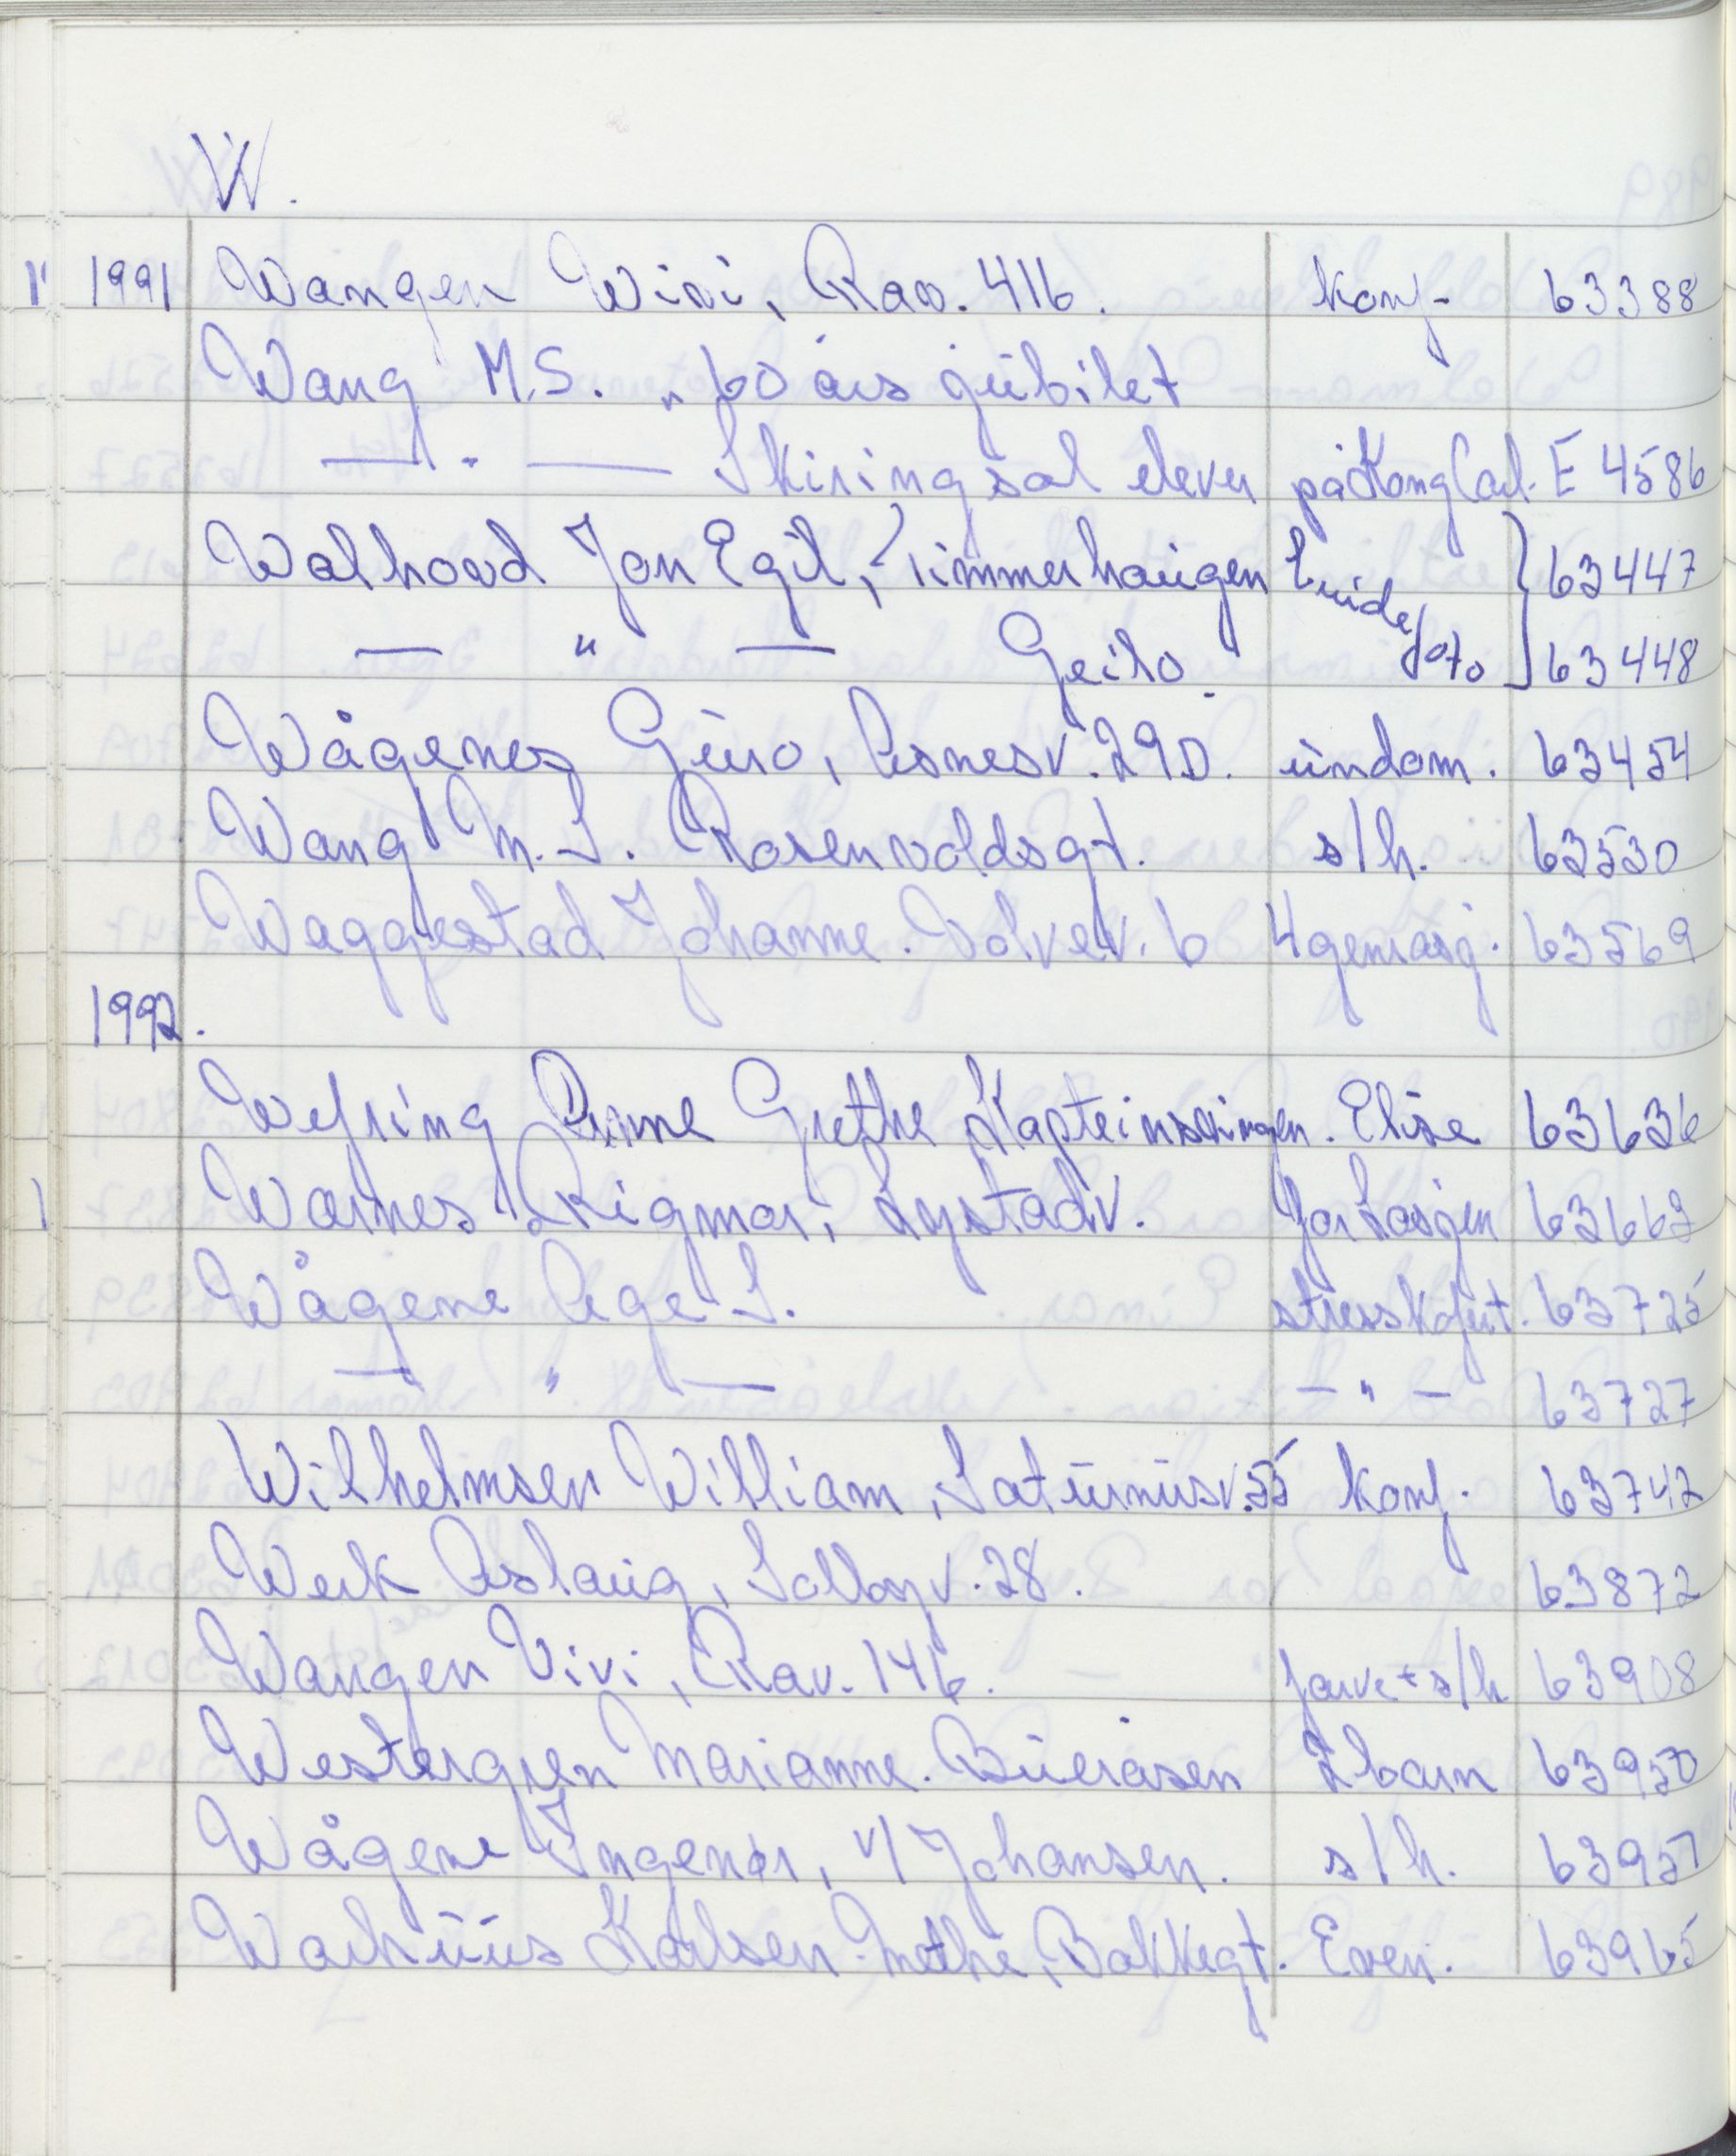 W.
1991 Wangen Wivi, Rav. 416. Konf. 63388
Wang M.S. " 60 års jubilet
— " — Skiringsal elever på Kong Carl. E 4586
Walhovd Jan Egil, Timmerhaugen brude 63447
— " — Geilo. foto 63448
Wågenes Guro, Asnesv. 29D. ungdom. 63454
Wang M.S. Rosenvoldsgt. s/h. 63530
Waggestad Johanne. Volvev. 6 4 generasj. 63569
1992.
Wefring Anne Grethe Kapteinsvingen. Elise 63636
Warnes Rigmor, Lystadv. 63669
Wågene Åge S. 63725
— " — — " — 63727
Wilhelmsen William, Saturnusv. 55 Konf. 63742
Werk Aslaug, Solbergv. 28. 63872
Wangen Vivi, Rav. 146. farve + s/h 63908
Westergren Marianne. Bueråsen 2 barn 63950
Wågene Ingemar, v/ Johansen. s/h. 63957
Warhuus Karlsen Grethe, Bakkegt. Even. 63965